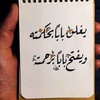 يغلق بابا بحكمته
ويفتح بابا برحمته